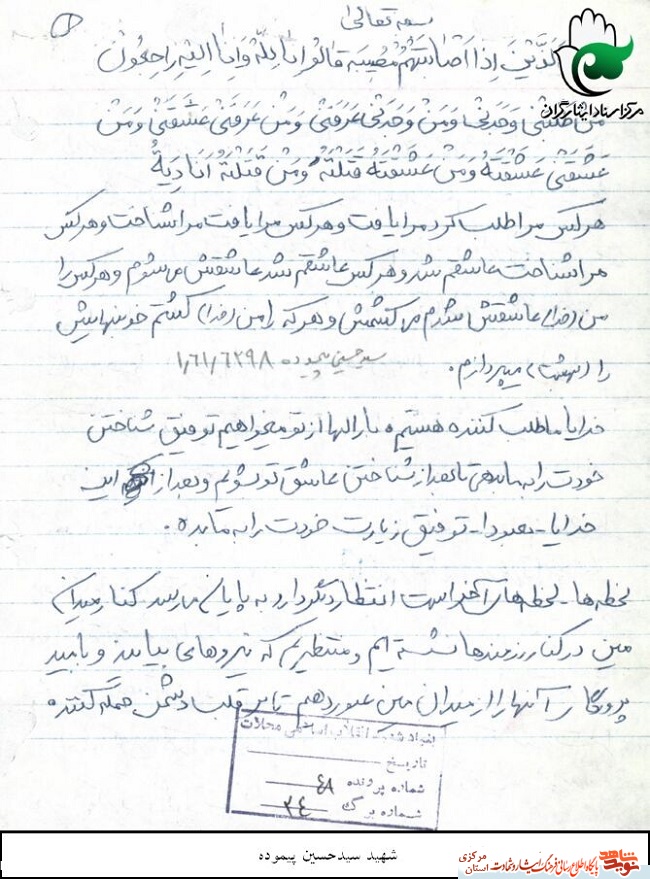 بسمه تعالی
مرکز اسناد ایثارگران
الَّذینَ اِذا اَصابَتهُم مُصیبَه قالُوا اِنا لِلّهِ وَ اِنا اِلَیهِ راجِعُون
مَن طَلَبَنی وَجَدَنی وَ مَن وَجَدَنی عَرَفَنی وَ مَن عَرَفَنی عَشَقَنی وَ مَن
عَشَقَنی عَشَقتَهُ وَ مَن عَشَقتَهُ قَتَلتَهُ وَ مَن قَتَلتَهُ اَنَا دِیَةُ
هر کس مرا طلب کرد مرا یافت و هر کس مرا یافت مرا شناخت و هر کس
مرا شناخت عاشقم شد و هر کس عاشقم شد عاشقش می شوم و هر کس را
من (خدا) عاشقش شدم می کشمش و هر که را من (خدا) کشتم خونبهایش
را (بهشت) میپردازم.
سید حسین پیموده ۱٫۶۱٫۶۲۹۸
خدایا ما طلب کننده هستیم بارالها از تو میخواهیم توفیق شناختن
خودت را به ما بدهی تا بعد از شناختن عاشق تو شویم و بعد از این
خدایا - معبودا - توفیق زیارت خودت را به ما بده.
لحظه ها - لحظه های آخر است انتظار دیگر دارد به پایان می رسد کنار میدان
مین در کنار رزمنده ها نشسته ایم و منتظریم که نیروهای بیایند و با امید
پروردگار آنها را از میدان مین عبور دهیم تا بر قلب دشمن حمله کننده
بنیاد شهید انقلاب اسلامی محلات
تاریخ
شماره پرونده ۴۸
شماره برگ ۲۴
شهید سیدحسین پیموده
نوید شاهد
پایگاه اطلاع رسانی فرهنگ ایثار و شهادت
استان مرکزی